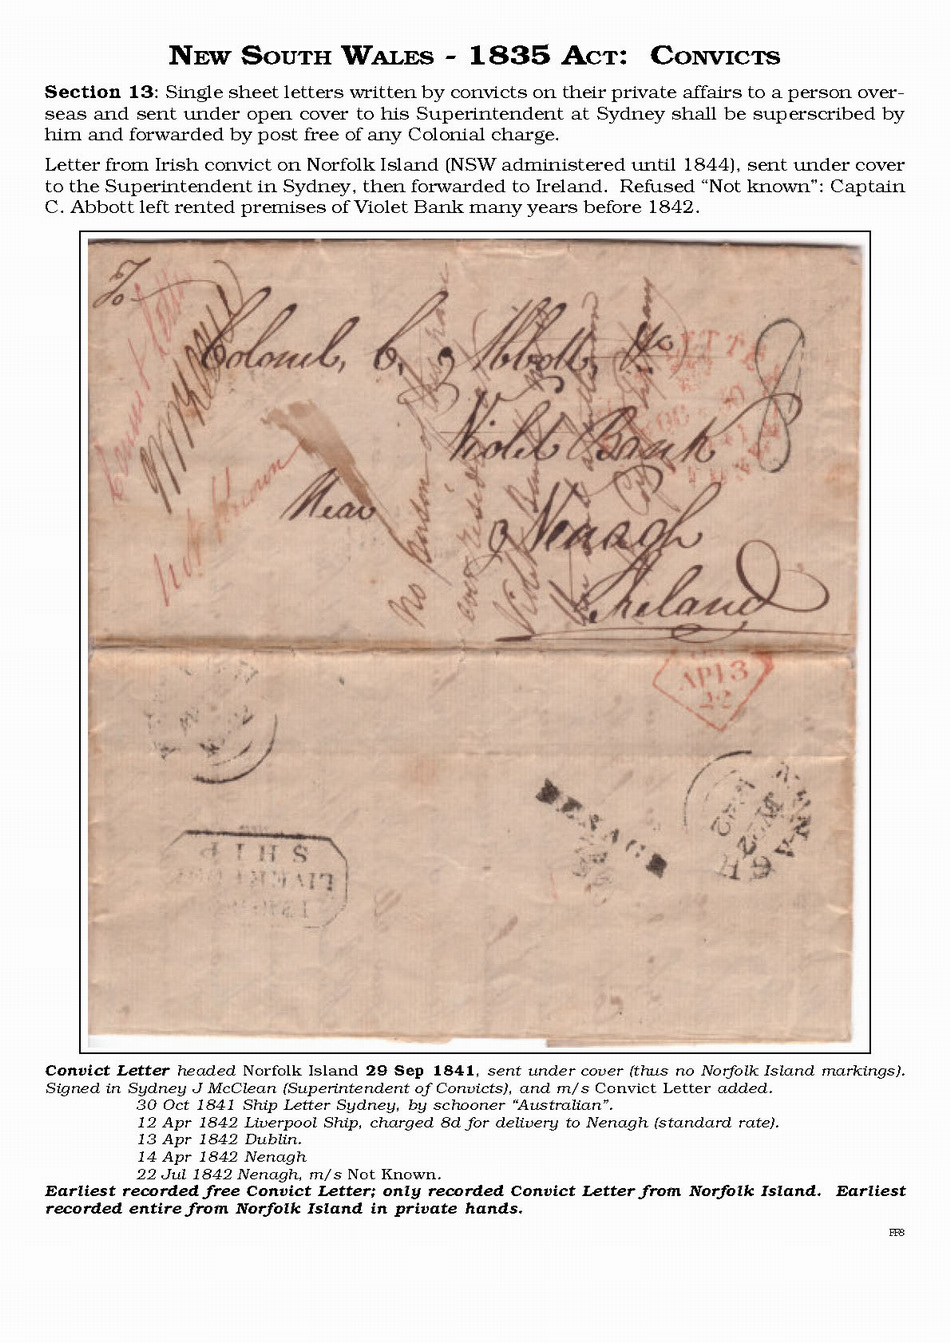 NEW SOUTH WALES - 1835 ACT: CONVICTS
Section 13: Single sheet letters written by convicts on their private affairs to a person over-
seas and sent under open cover to his Superintendent at Sydney shall be superscribed by
him and forwarded by post free of any Colonial charge.
Letter from Irish convict on Norfolk Island (NSW administered until 1844), sent under cover
to the Superintendent in Sydney, then forwarded to Ireland. Refused “Not known”: Captain
C. Abbott left rented premises of Violet Bank many years before 1842.
To
Convict Letter
Colonel, C, Abbott,
8
Violet Bank
Not Known
Near
Nenagh
Ireland
No person of
ever resided
Violet Bank
AP 13
22
NENAGH
NENAGH
SHIP
LIVERPOOL
Convict Letter headed Norfolk Island 29 Sep 1841, sent under cover (thus no Norfolk Island markings).
Signed in Sydney J McClean (Superintendent of Convicts), and m/s Convict Letter added.
30 Oct 1841 Ship Letter Sydney, by schooner “Australian”.
12 Apr 1842 Liverpool Ship, charged 8d for delivery to Nenagh (standard rate).
13 Apr 1842 Dublin.
14 Apr 1842 Nenagh
22 Jul 1842 Nenagh, m/s Not Known.
Earliest recorded free Convict Letter; only recorded Convict Letter from Norfolk Island. Earliest
recorded entire from Norfolk Island in private hands.
FF8